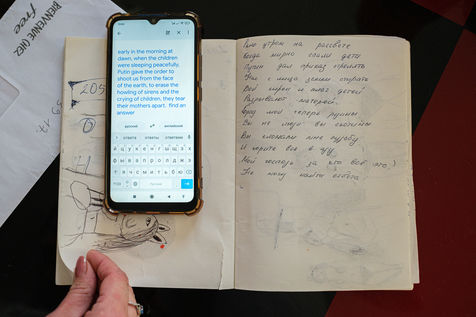 BIENVENUE CHEZ
free
205
early in the morning at
dawn, when the children
were sleeping peacefully,
Putin gave the order to
shoot us from the face
of the earth, to erase the
howling of sirens and the
crying of children, they tear
their mothers apart. find an
answer
русский английский
ответа ответы ответами
й ц у к е н г ш щ з х
ф ы в а п р о л д ж э
я ч с м и т ь б ю
?123 Русский
Рано утром на рассвете
Когда мирно спали дети
Путин дал приказ стрелять
Нас с лица земли стирать
Вой сирен и плач детей
Разрывают матерей.
мой теперь руины
Вы не люди вы скотины
Вы сломали мне судьбу
И горите все в аду
Мой господь за что всё это?
Не могу найти ответа